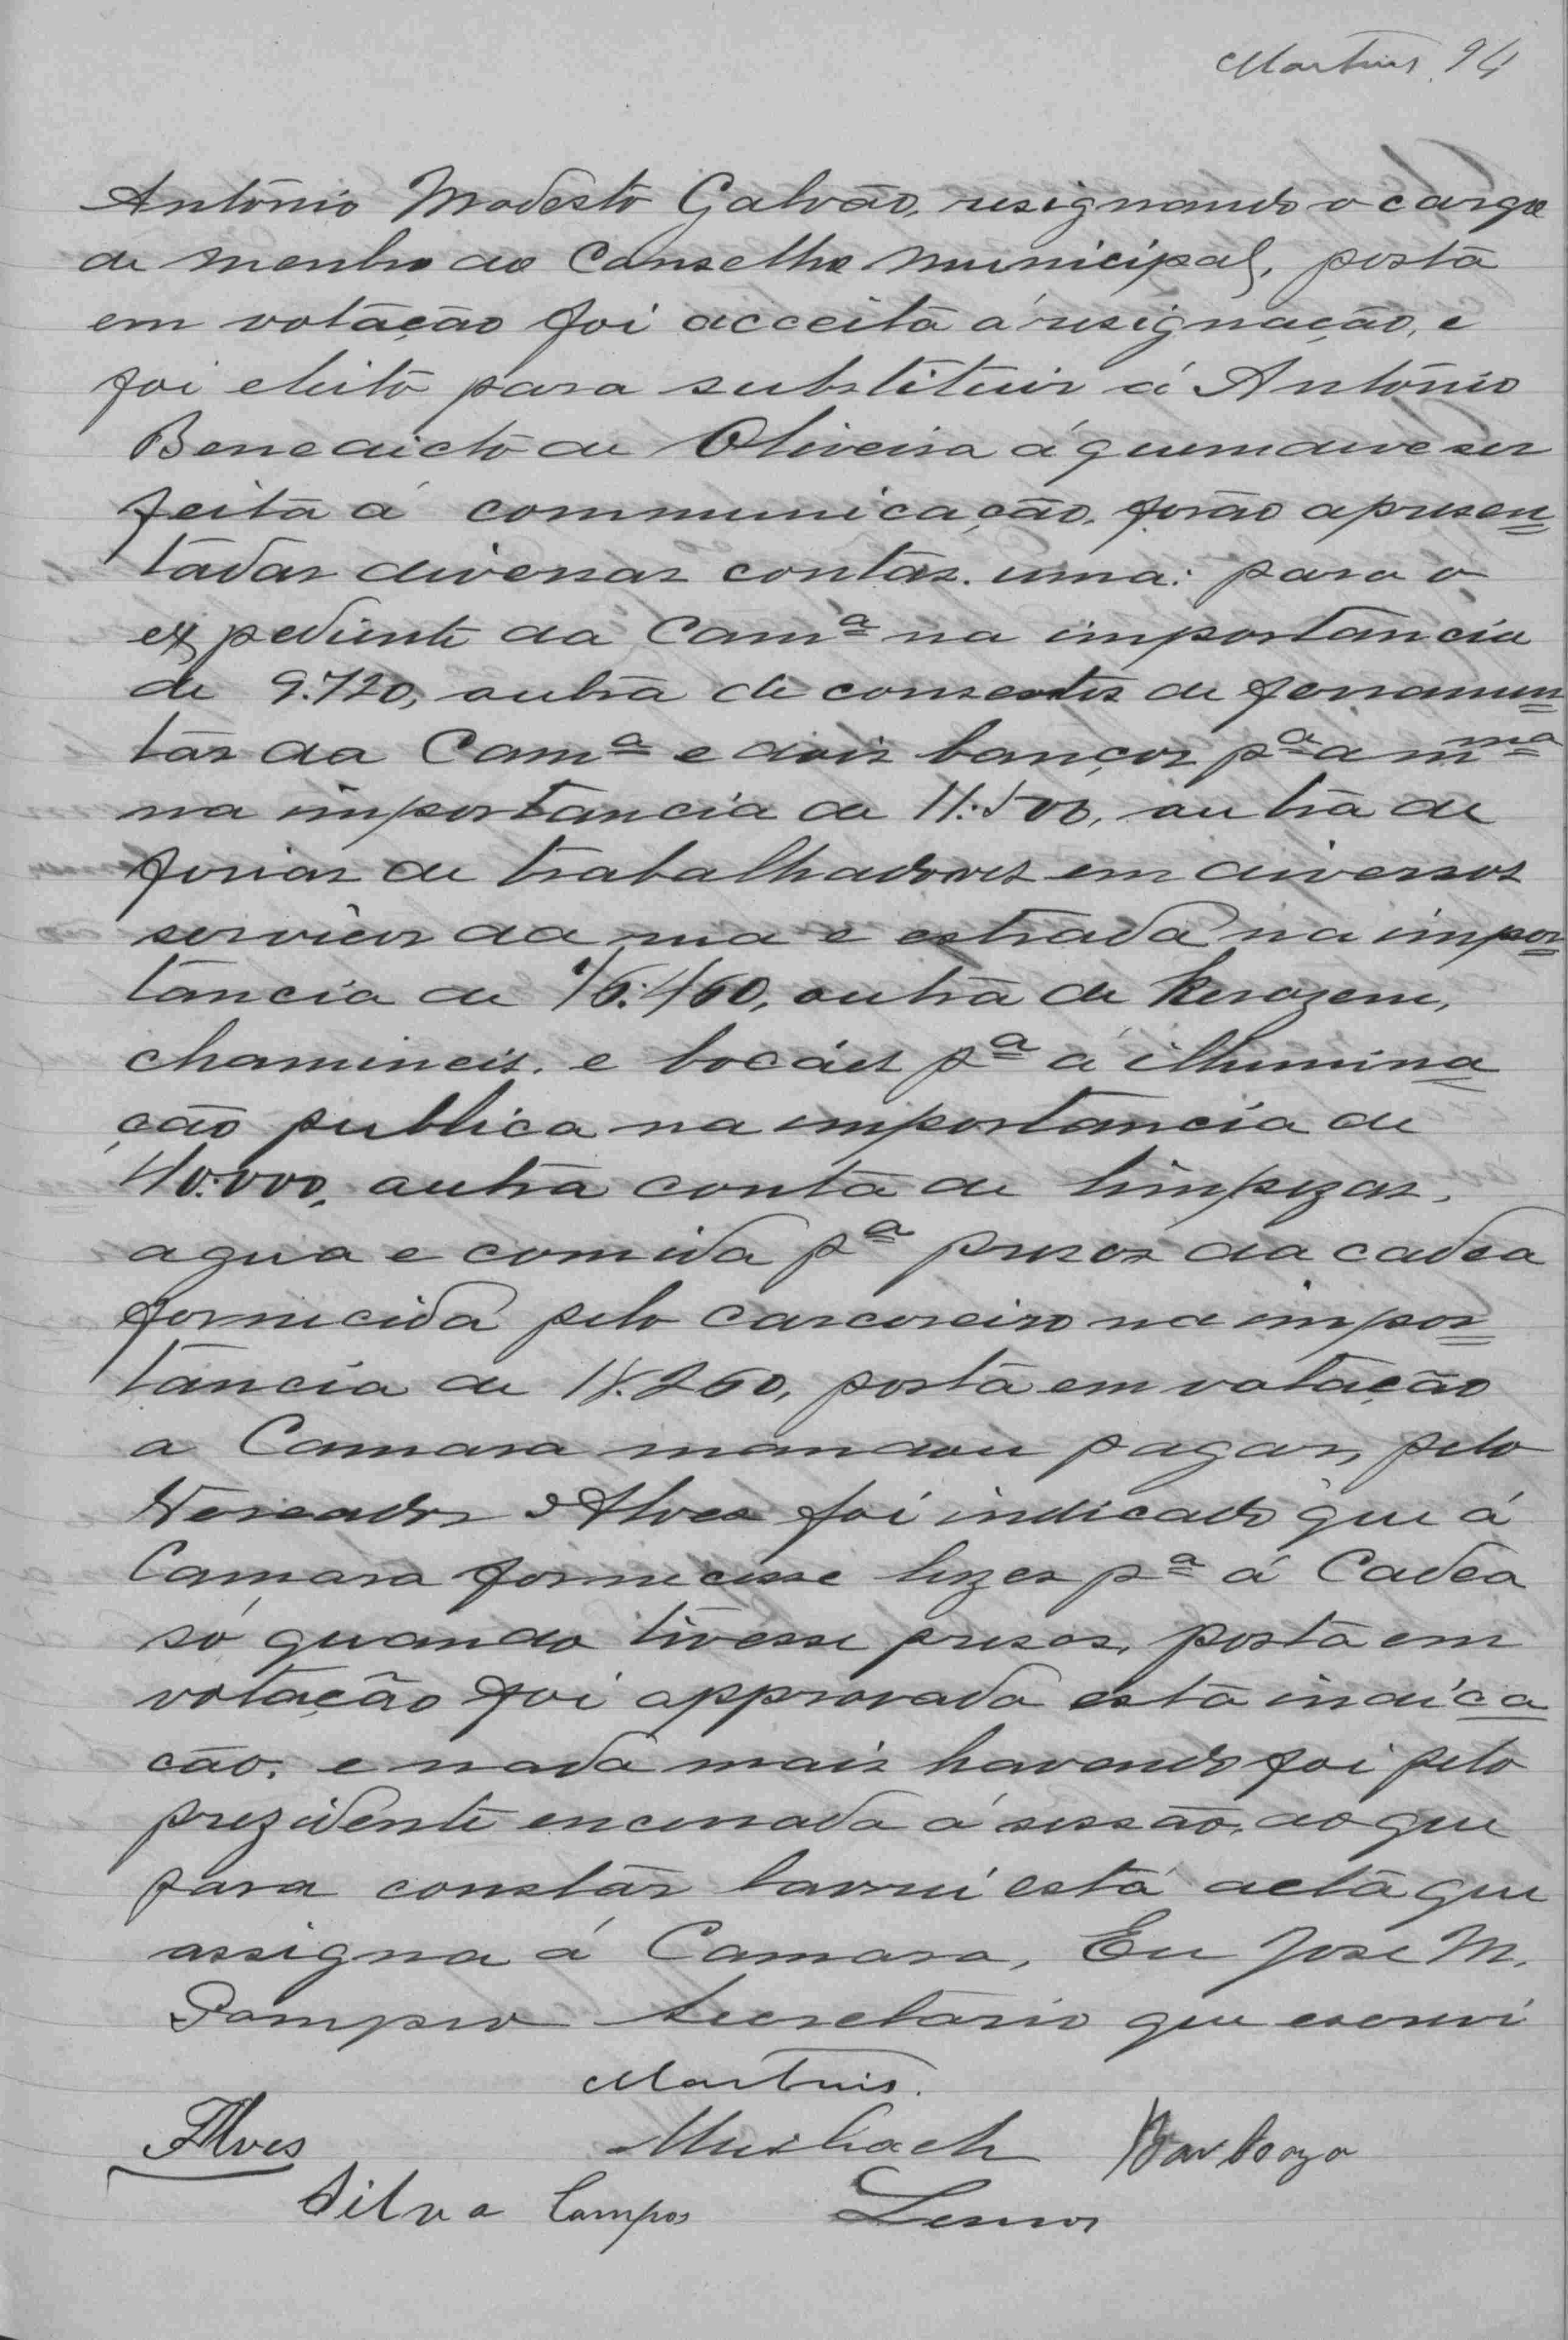 Martins 94
Antonio Modesto Galvão, resignando o cargo
de menbro do Conselho Municipal, posta
em votação foi acceita á resignação, e
foi eleito para substituir á Antonio
Benedicto de Oliveira á quem deve ser
feita á communicação. forão apresen=
tadas diversas contas. uma: para o
expediente da Camª na importancia
de 9.720, outra de consertos de ferramen=
tas da Camª e dois bancos pª a mmª
na importancia de 11:500, outra de
ferias de trabalhadores em diversos
serviços da rua e estrada na impor=
tancia de 460, outra de Kerozene,
chamineis. e bocáes pª á illumina
ção publica na importancia de
40:000, outra conta de limpezas,
agua e comida pª presos da cadea
fornecida pelo carcereiro na impor=
tancia de 18.260, posta em votação
a Camara mandou pagar, pelo
Vereador Alves foi indicado que á
Camara fornecesse luzes pª á Cadea
só quando tivesse presos, posta em
votação foi approvada esta indica
cão. e nada mais havendo foi pelo
prezidente encerrada á sessão, do que
para constar lavrei está acta que
assigna á Camara, Eu Jose M.
Pompeo Secretario que escrevi
Martins.
Alves Barboza
Silva Campos Lemos